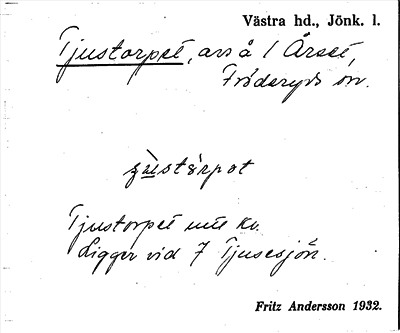 Västra hd., Jönk. l.
Tjustorpet, avs å 1 Årset,
Fröderyds sn.
Tjustorpet
Ligger vid 7 Tjusesjön.
Fritz Andersson 1932.